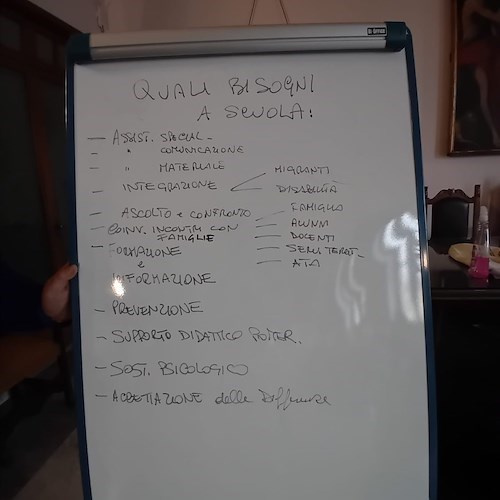 QUALI BISOGNI
A SCUOLA:
— ASSIST. SPECIAL –
– " COMUNICAZIONE
– " MATERIALE
– INTEGRAZIONE
MIGRANTI
DISABILITÀ
— ASCOLTO e CONFRONTO
FAMIGLIA
ALUNNI
DOCENTI
ATA
– COINV. INCONTRI CON
FAMIGLIE
– FORMAZIONE
e
INFORMAZIONE
– PREVENZIONE
– SUPPORTO DIDATTICO
– SOST. PSICOLOGICO
– ACCETTAZIONE delle Differenze